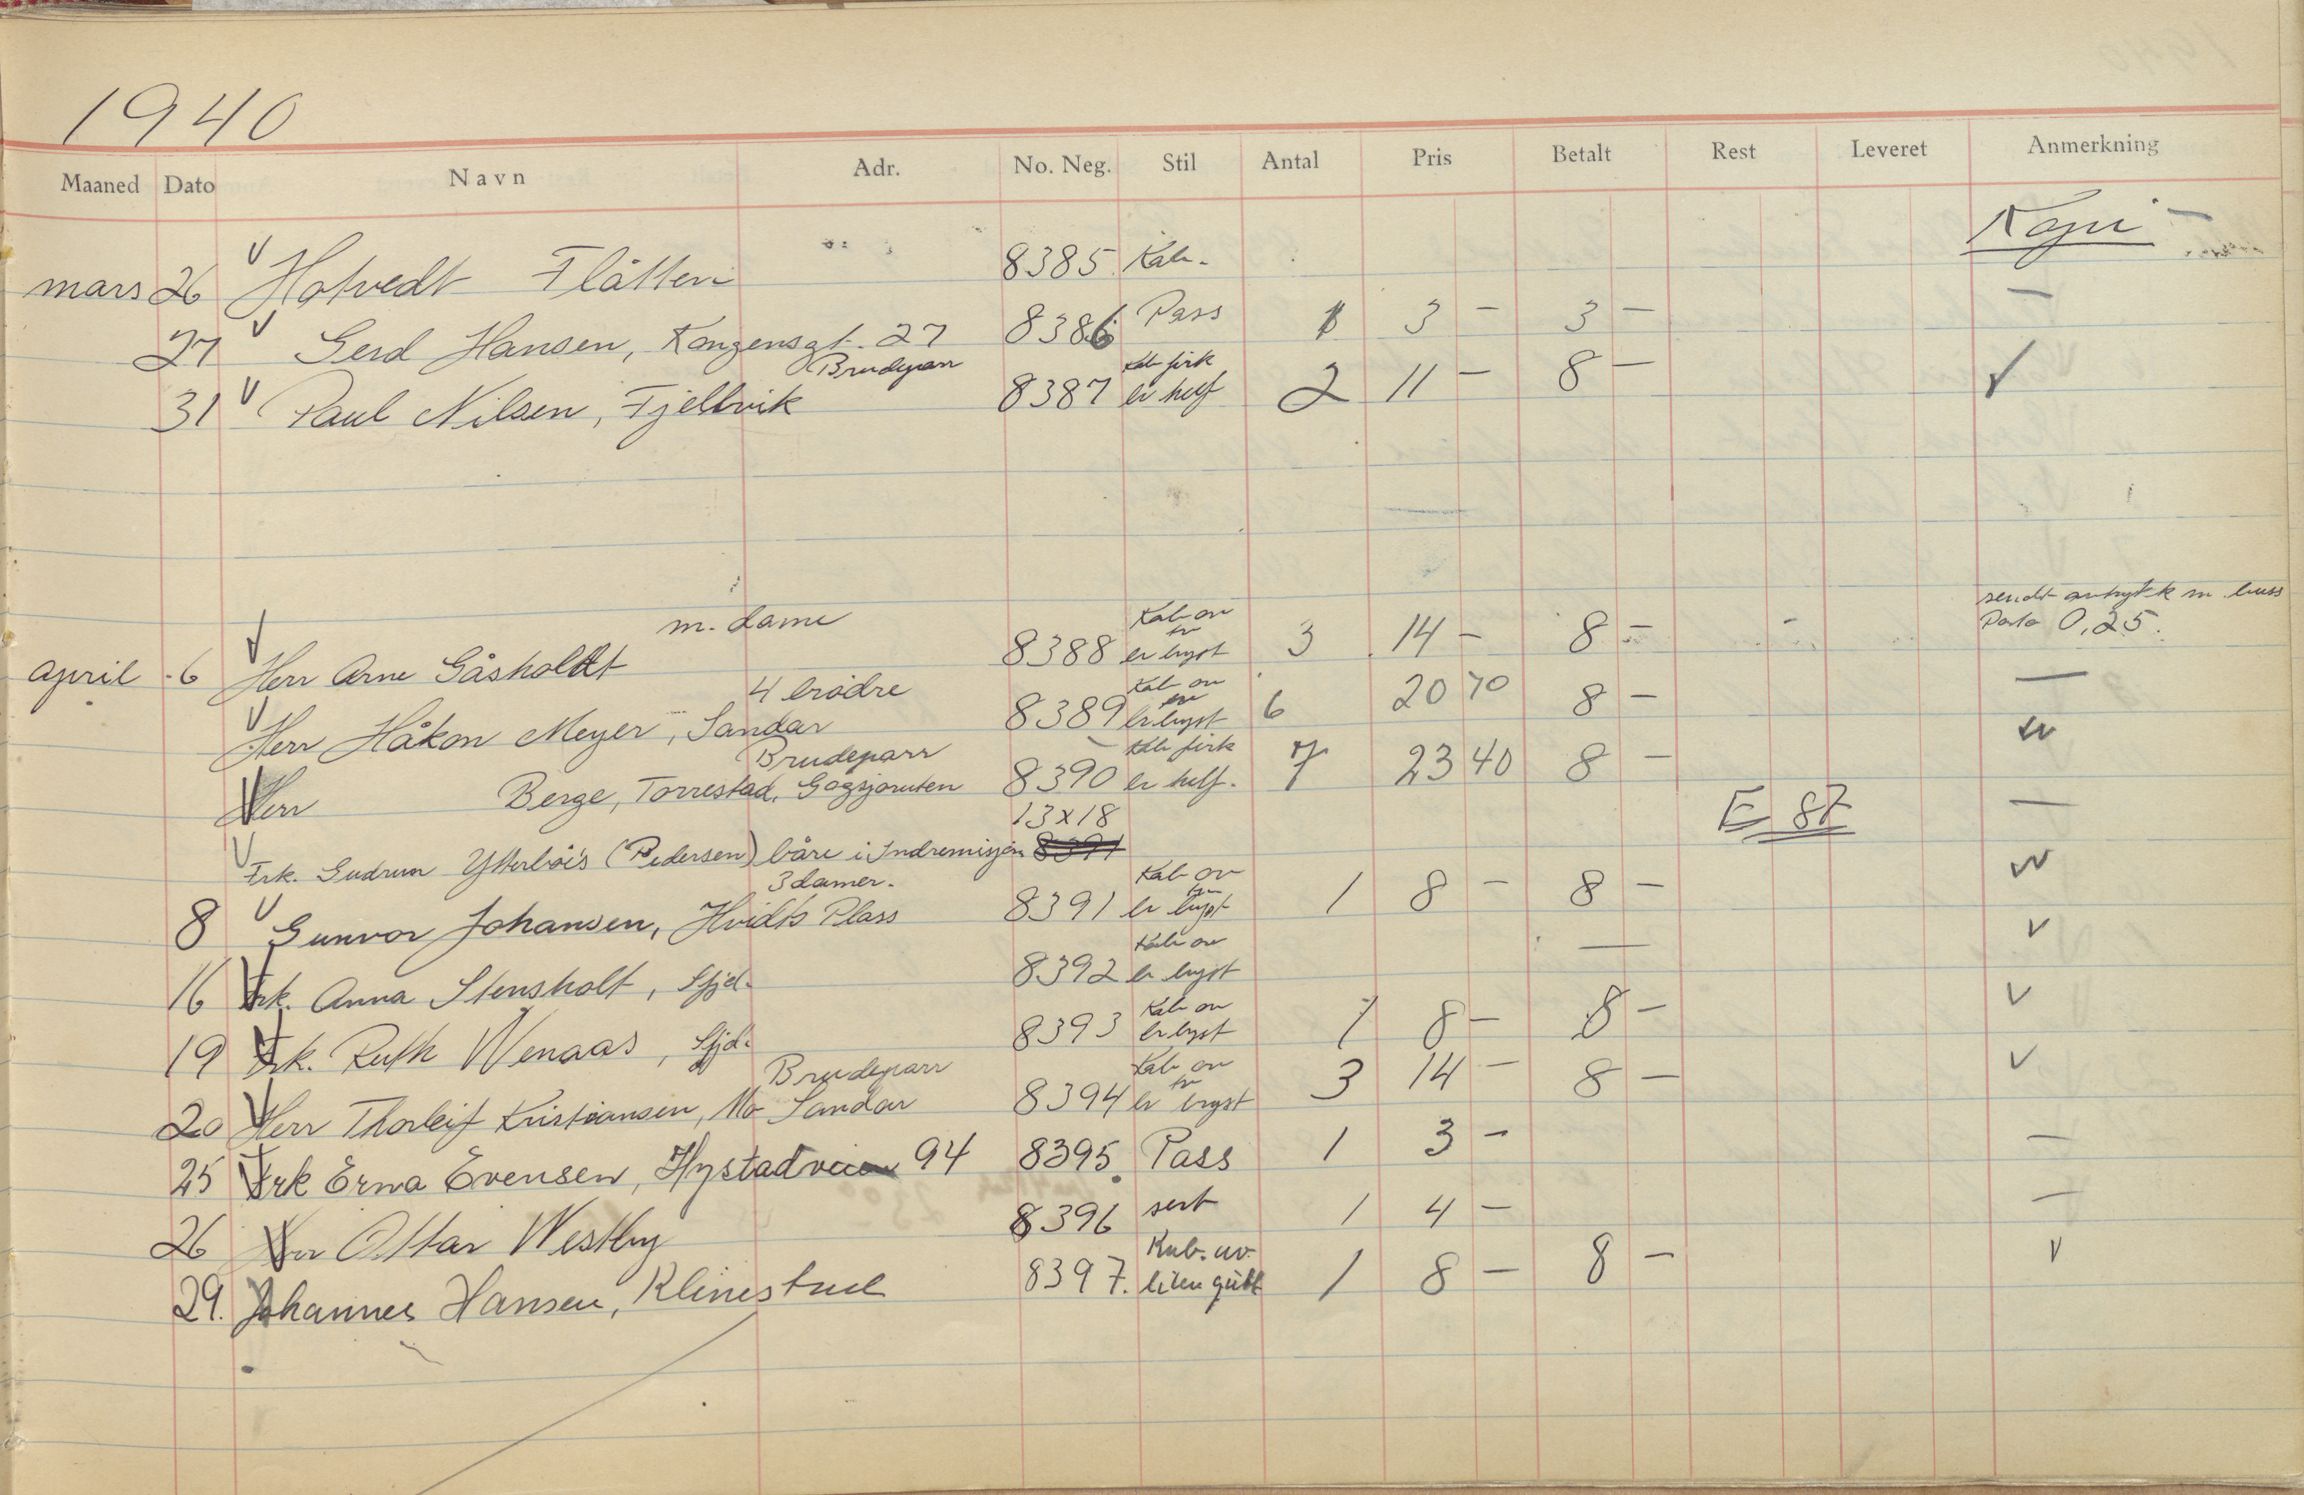 1940
Maaned Dato Navn Adr. No. Neg. Stil Antal Pris Betalt Rest Leveret Anmerkning
Kopi
mars 26 V Hotvedt Flåtten 8385 Kab. —
27 V Gerd Hansen, Kongensgt. 27 8386 Pass 1 3 — 3 — —
Brudeparr Kab firk
31 V Paul Nilsen, Fjellvik 8387 er helf 2 11 — 8 — V
m. dame Kab ov sendt m buss
april 6 V Herr Arne Gåsholdt 8388 er bryst 3 14 — 8 — Porto 0,25.
4 brödre Kab ov
V Herr Håkon Meyer, Sandar 8389 er bryst 6 20 70 8 — —
Brudeparr Kab firk
V Herr Berge, Torrestad, Gogsjøruten 8390 er helf. 7 23 40 8 — V
13x18 E 87 —
V Frk. Gudrun (Pedersen) båre i Indremisjon 8391
3 damer. Kab ov
8 V Gunvor Johansen, Hvidts Plass 8391 er bryst 1 8 — 8 — V
Kab ov
16 V Frk. Anna Stensholt, Sfjd. 8392 er bryst — V
Kab ov
19 V Frk. Ruth Wenaas, Sfjd. 8393 er bryst 1 8 — 8 — V
Brudeparr Kab ov
20 V Herr Thorleif Kristiansen, Mo Sandar 8394 er bryst 3 14 — 8 — V
25 V Frk Erna Evensen, Hystadveien 94 8395 Pass 1 3 — —
26 V Herr Ottar Westby 8396 sert 1 4 — —
Kab. ov.
29. V Johannes Hansen, Klinestad 8397. liten gutt 1 8 — 8 — V